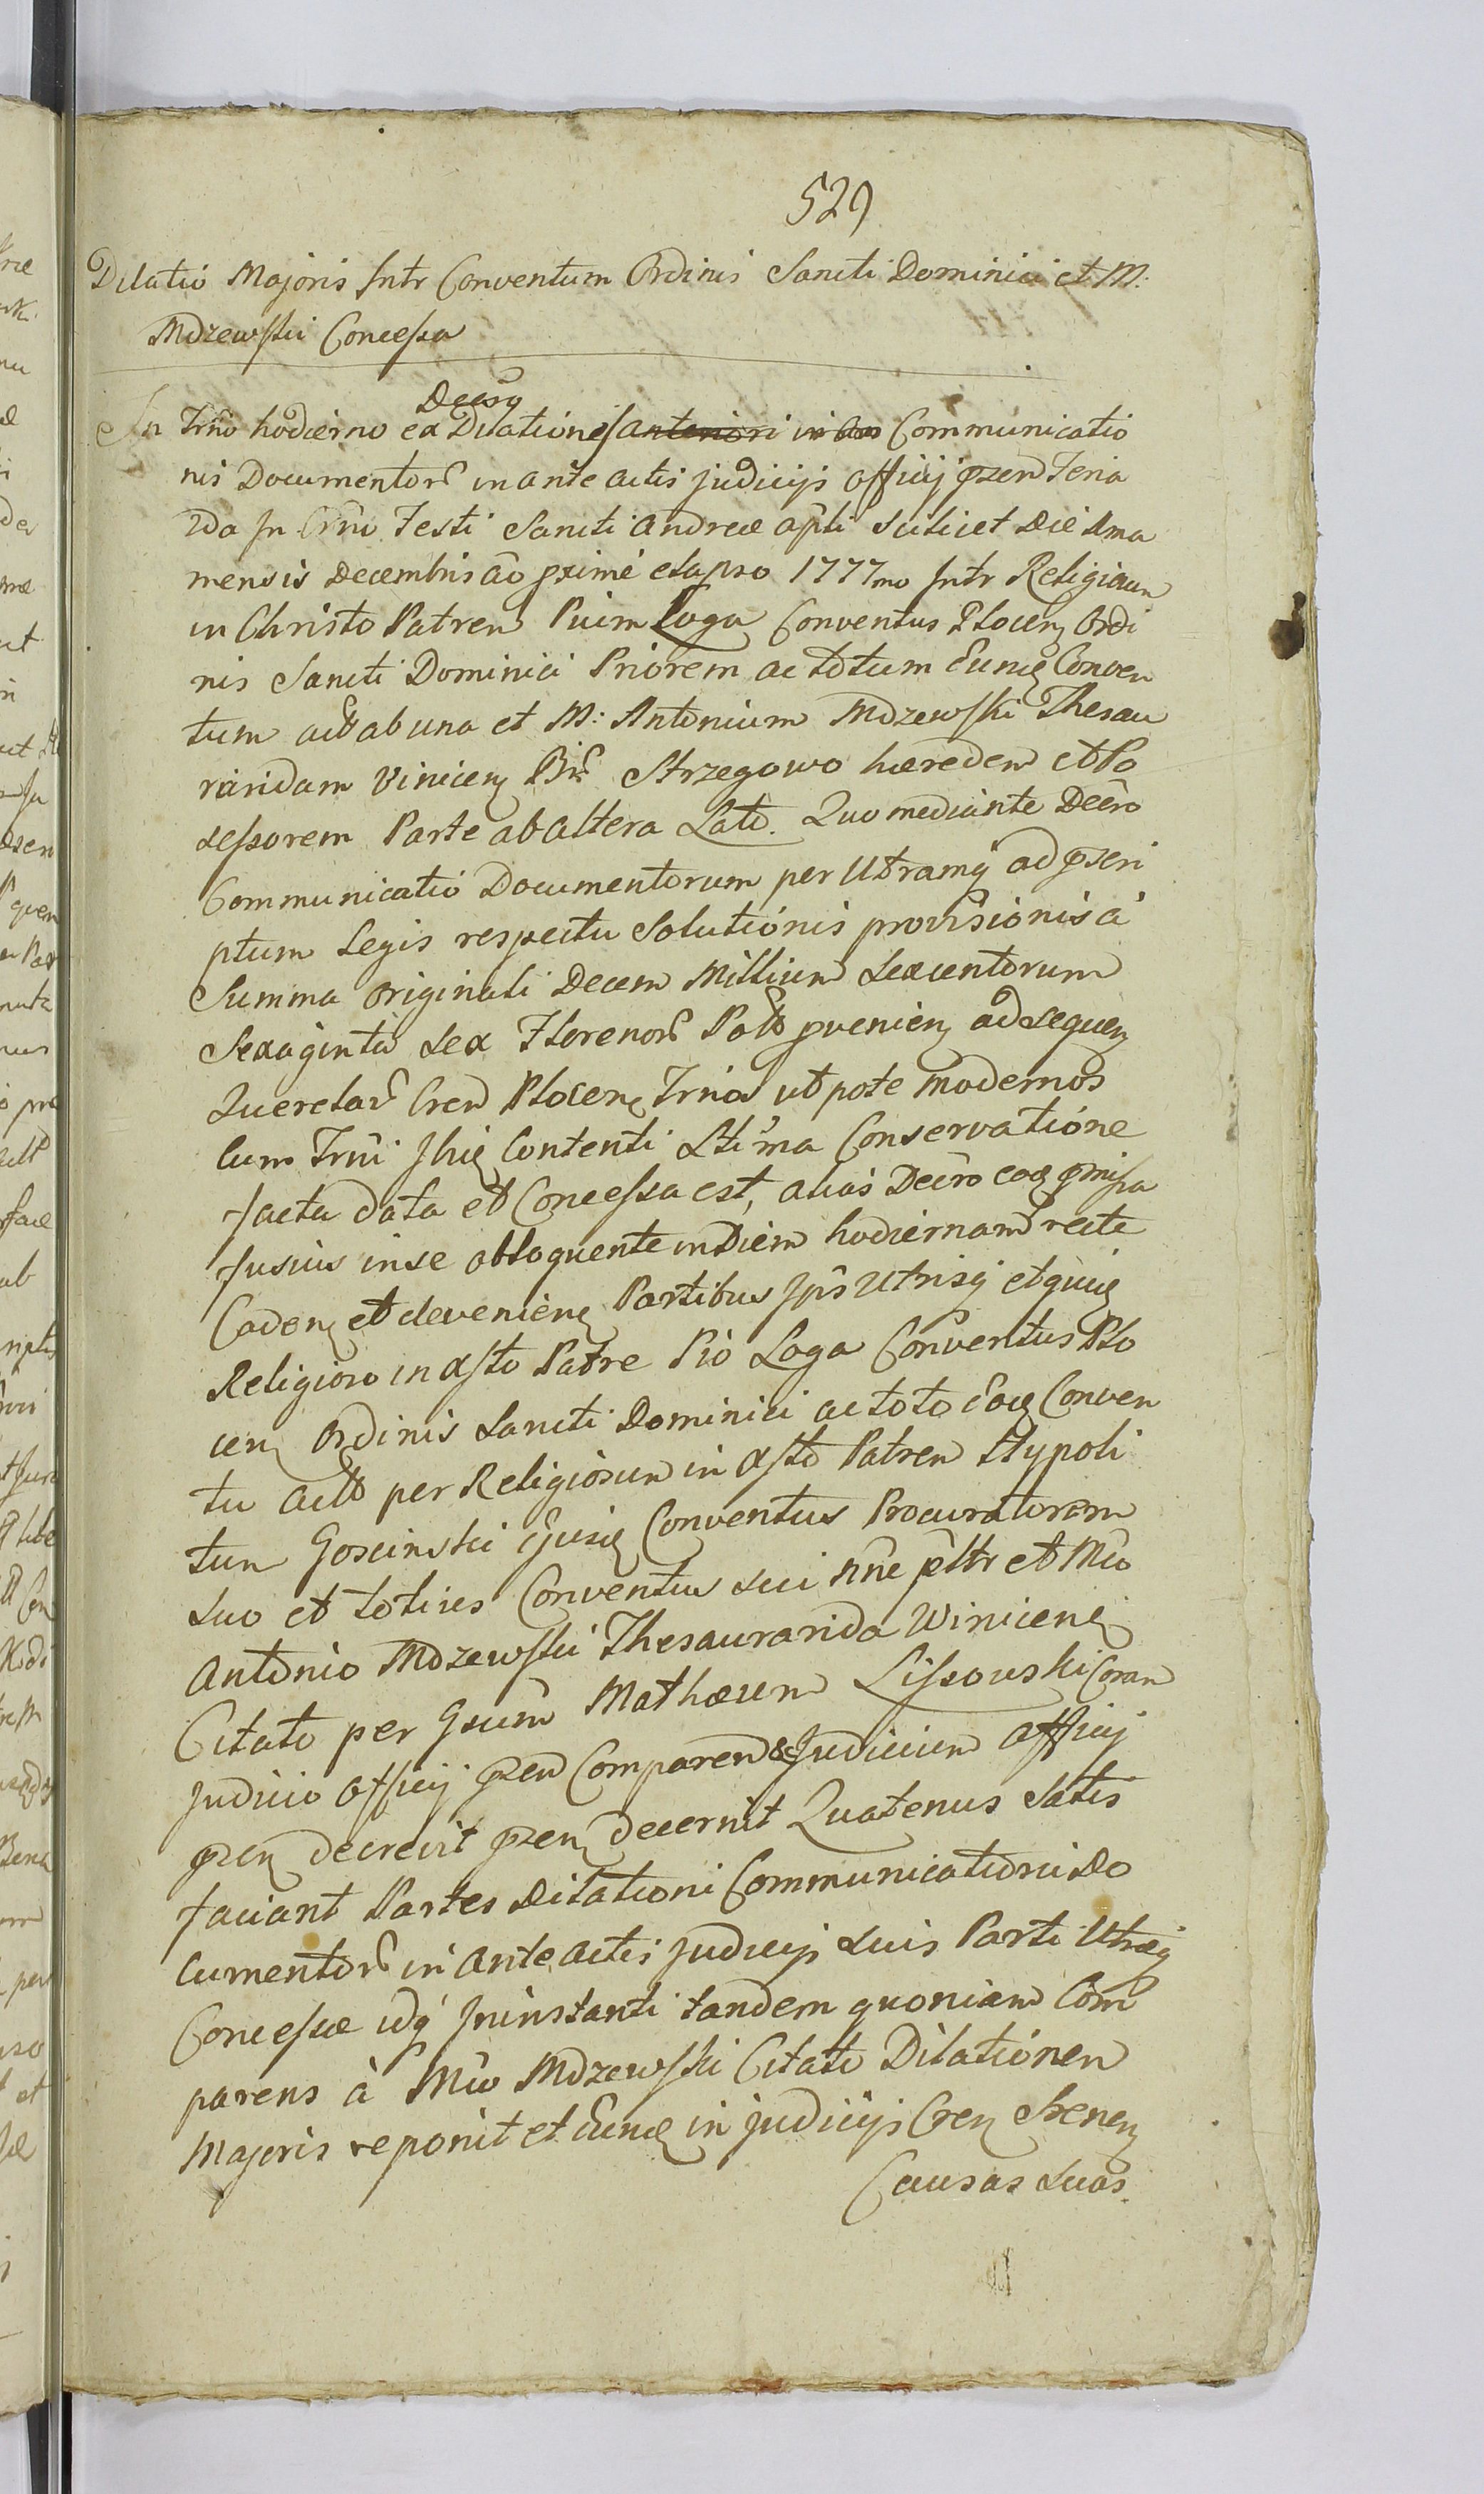 529
Dilatio Majoris Intr Conventum Ordinis Sancti Dominici et M:
Mdzewski Concessa
Decro
In Trno hodierno ex Dilationes anteriori in Communicatio
nis Documentor in ante actis judicijs officij pzen Feria
2da In Crno Festi Sancti Andreæ Apli scilicet Die 1ma
mensis Decembris Ao pxime elapso 1777mo Intr Religiosum
in Christo Patrem Pium Łaga Conventus Plocen Ordi
nis Sancti Dominici Priorem ac totum Eunq Conven
tum act ab una et M: Antonium Mdzewski Thesau
raridam Vinicen Bnr Strzegowo hæredem et Po
sessorem Parte ab altera Lato. Quo mediante Decro
Communicatio Documentorum per Utramq ad pscri
ptum Legis respectu Solutionis provisionis a
Summa Originali Decem Millium Sexcentorum
Sexaginta Sex Florenor Polt pvenien ad sequen
Querelar Cren Plocen Trnos utpote modernos
Cum Trni Ihq Contenti Ltima Conservatione
facta data et Concessa est, alias Decro eoq pmissa
fusius in se obloquente in Diem hodiernam recte
Caden et devenien Partibus Ips Utrisq et quiq
Religioso in Xsto Patre Pio Łaga Conventus Plo
cen Ordinis Sancti Dominici ac toto Eoq Conven
tu actt per Religiosum in Xsto Patrem Hypoli
tum Goscinski Ejusq Conventus Procuratorem
suo et totius Conventus sui nne pltr et Mco
Antonio Mdzewski Thesaurarida Winicen
Citato per Gsum Mathæum Lissowski Coram
Judicio Officij pzen Comparen & Judicium Officij
pzen decrevit pzen decernit Quatenus Satis
faciant Partes Dilationi Communicationi Do
cumentor in Ante actis judicijs suis Parti Utræq
Concessæ idq In instanti tandem quoniam Com
parens à Mco Mdzewski Citato Dilationem
Majoris reponit et Eunq in judicijs Cren Srenen
Causas suas